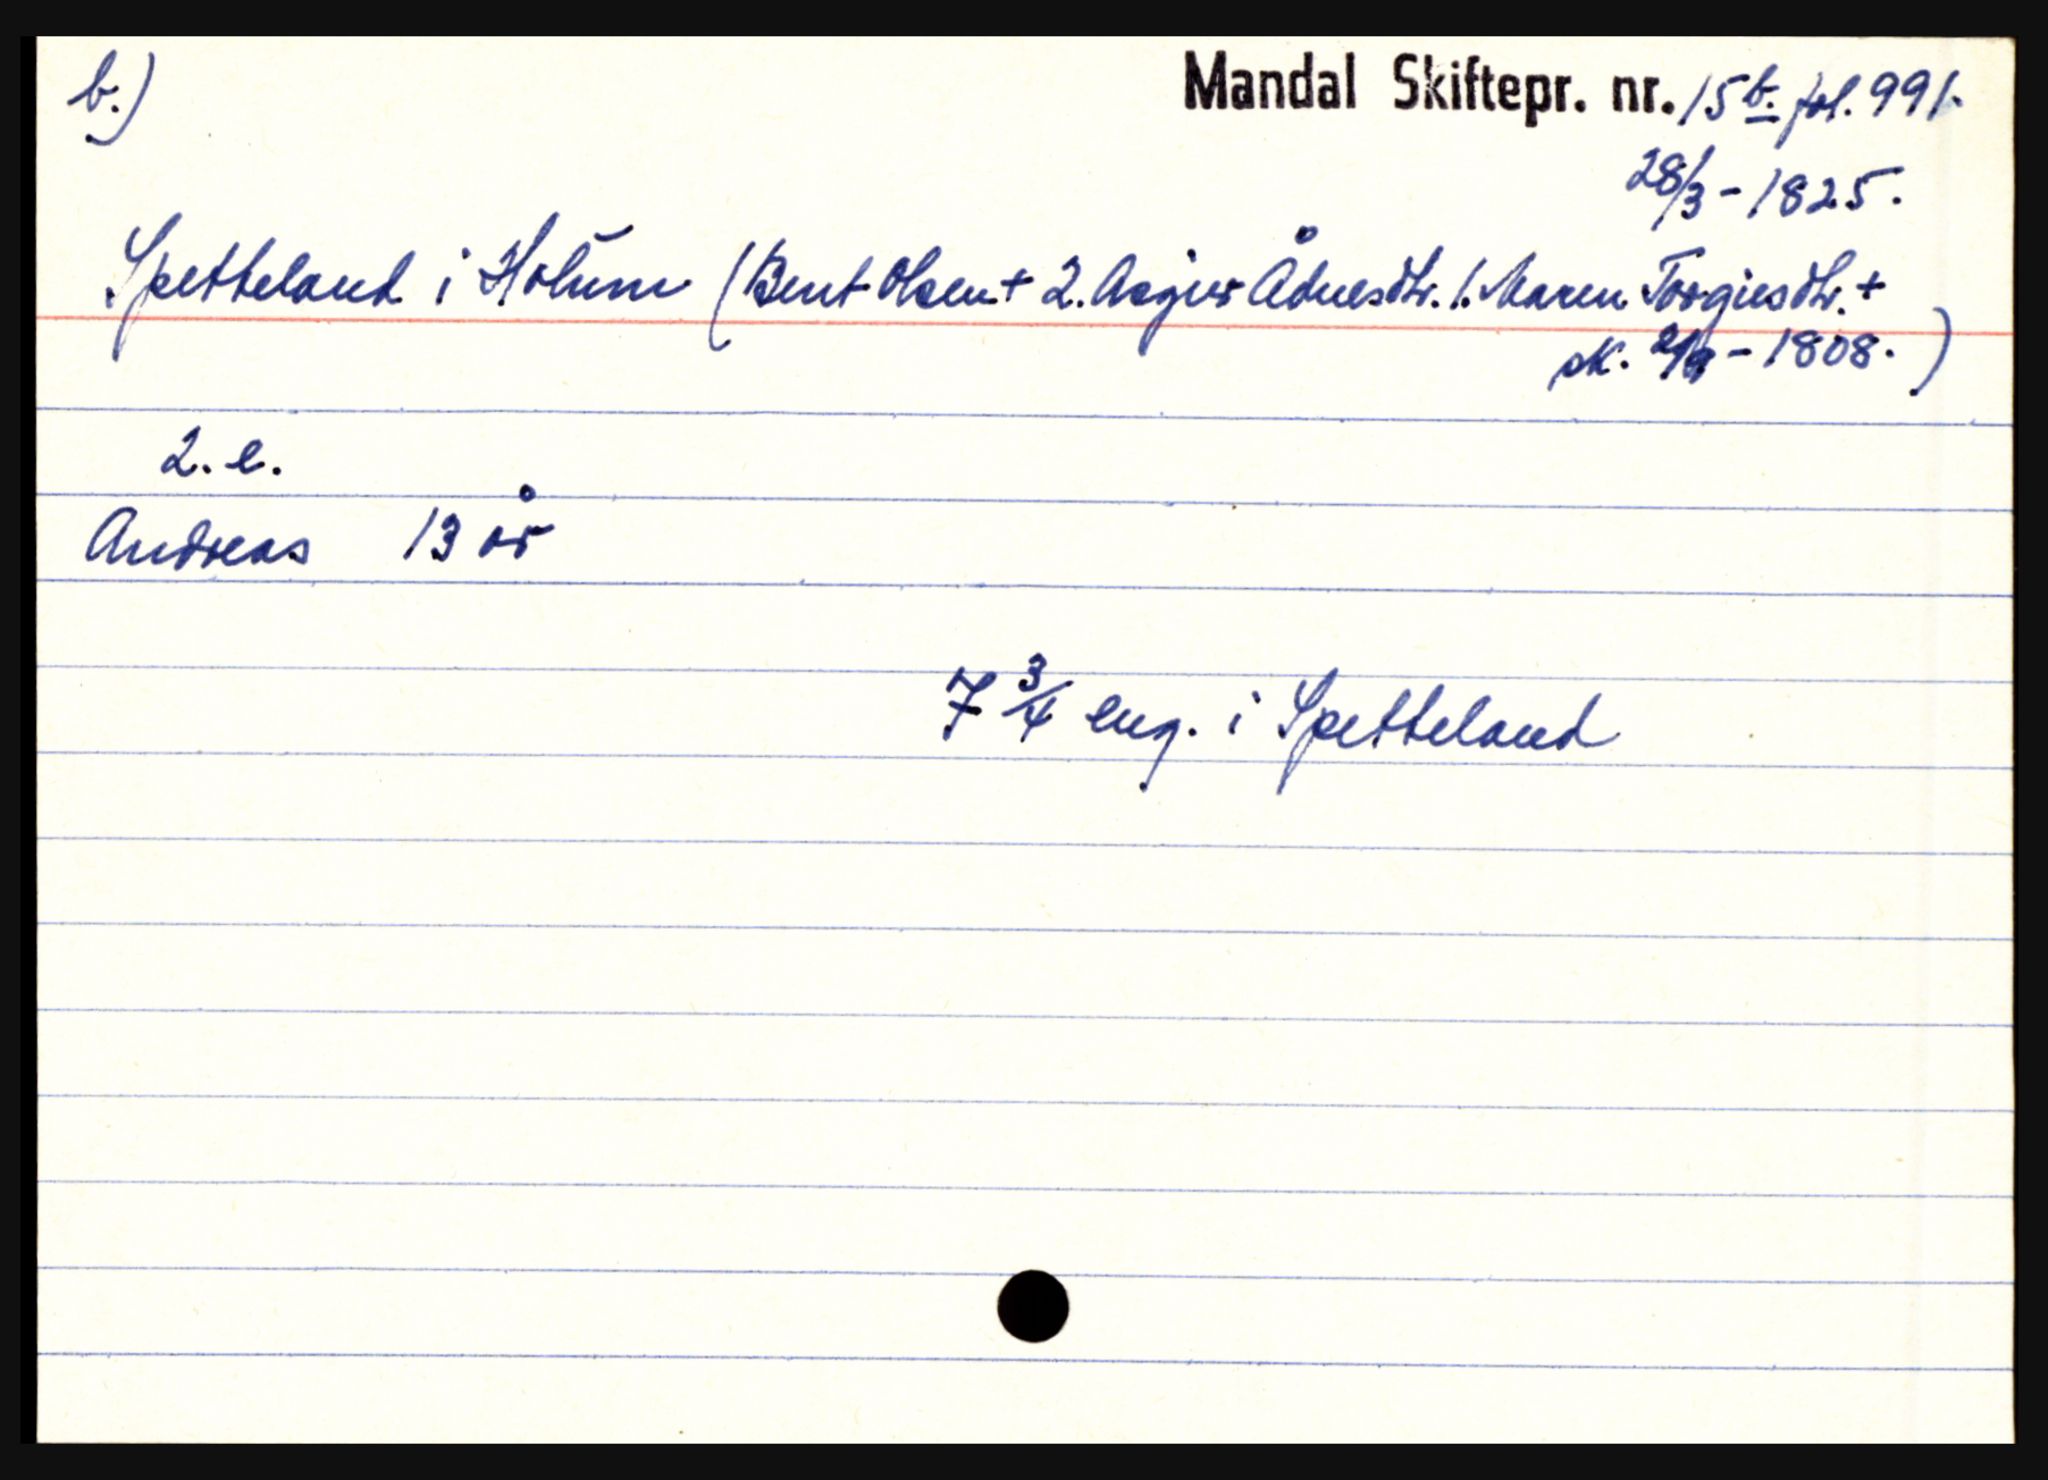 b.) Mandal Skiftepr. nr. 15b. fol. 991.
28/3 - 1825.
Spetteland i Holum (Bent Olsen + 2. Asgier Ådnesdtr. 1. Maren Torgiesdtr. +
sk. - 1808. )
2. e.
Andreas 13 år
7 3/4 eng. i Spetteland